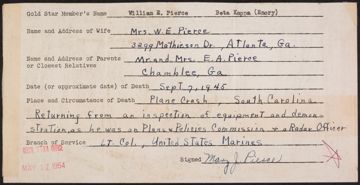 Gold Star Member's Name William E. Pierce Beta Kappa (Emory)
Name and Address of Wife Mrs. W.E. Pierce
3299 Mathieson Dr., Atlanta, Ga.
Name and Address of Parents or Closest Relatives Mr. and Mrs. E.A. Pierce
Chamblee, Ga
Date (or approximate date) of Death Sept 7, 1945
Place and Circumstance of Death Plane Crash, South Carolina
Returning from an inspection of equipment and demon-
stration, as he was on Plans & Policies Commission & a Radar Officer
Branch of Service Lt. Col., United States Marines
MAY 17 1954
Signed Mary J. Pierce